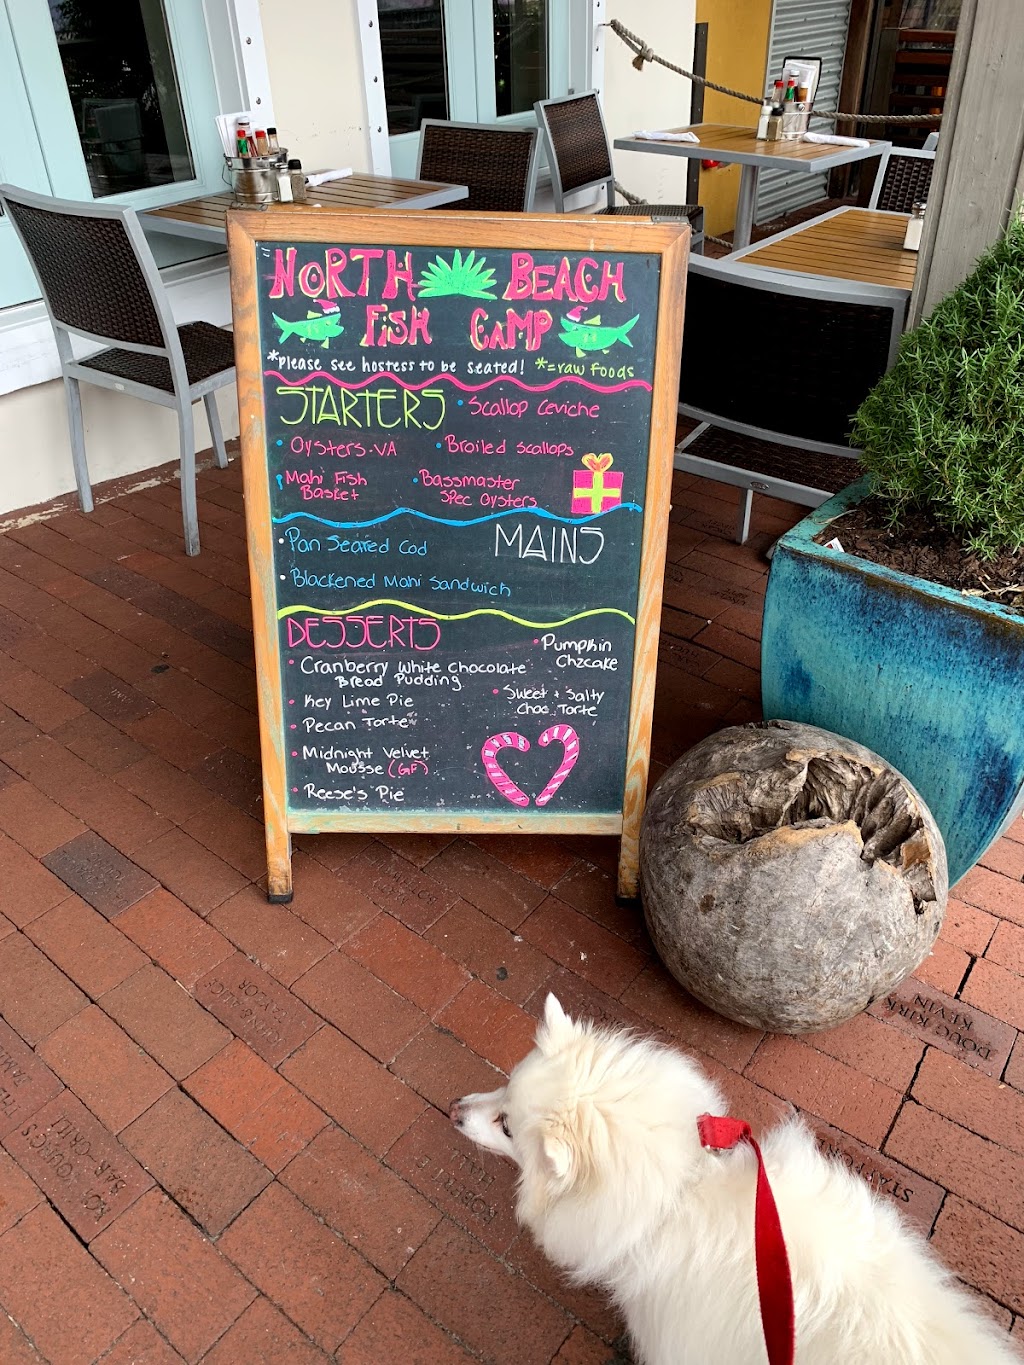 NORTH BEACH
FISH CAMP
*please see hostess to be seated! *=raw foods
STARTERS
• Scallop Ceviche
• Oysters-VA
• Broiled scallops
• Mahi Fish
Basket
• Bassmaster
Spec Oysters
MAINS
• Pan Seared Cod
• Blackened Mahi Sandwich
DESSERTS
• Pumpkin
Chzcake
• Cranberry White Chocolate
Bread Pudding
• Key Lime Pie
• Sweet + Salty
Choc Torte
• Pecan Torte
• Midnight Velvet
Mousse (GF)
• Reese's Pie
DOUG KIRK
KEVIN